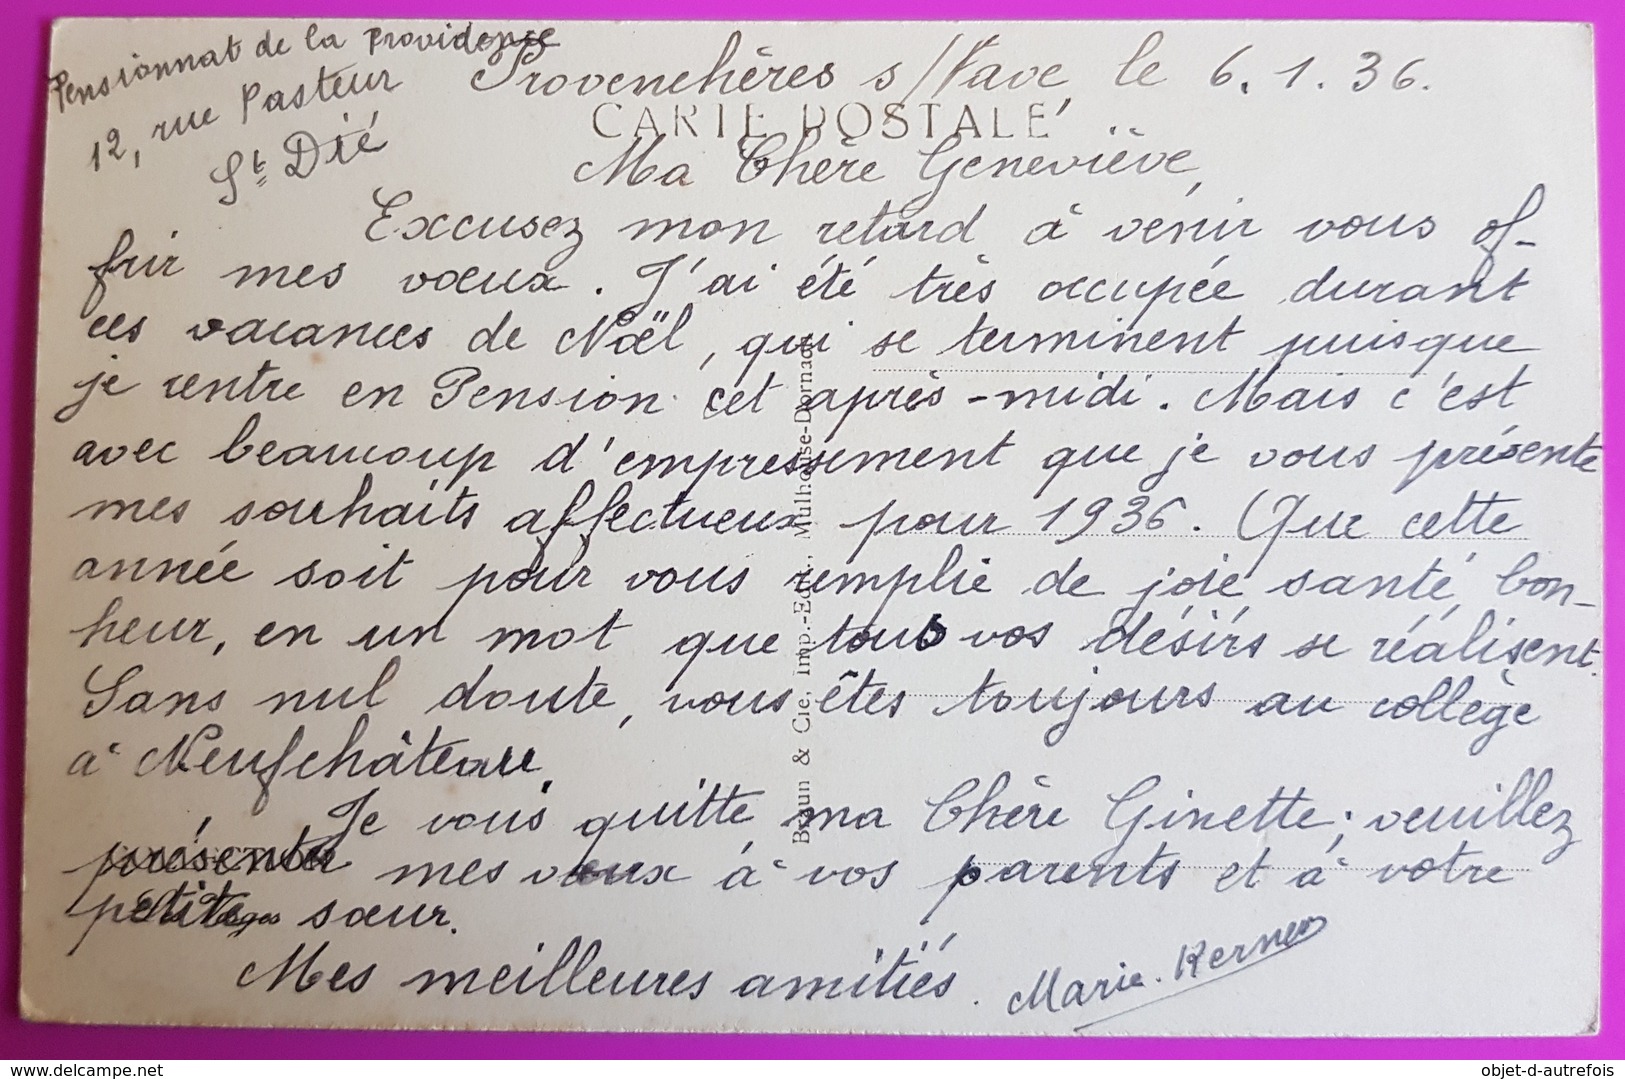 Pensionnat de la Providence
12, rue Pasteur
St Dié
Provenchères s/Fave, le 6.1.36.
CARTE POSTALE
Ma Chère Geneviève,
Excusez mon retard à venir vous of-
frir mes vœux. J'ai été très occupée durant
ces vacances de Noël, qui se terminent puisque
je rentre en Pension cet après-midi. Mais c'est
avec beaucoup d'empressement que je vous présente
mes souhaits affectueux pour 1936. Que cette
année soit pour vous remplie de joie santé, bon-
heur, en un mot que tous vos désirs se réalisent.
Sans nul doute, vous êtes toujours au collège
à Neufchâteau.
Je vous quitte ma Chère Ginette; veuillez
présenter mes vœux à vos parents et à votre
petite sœur.
Mes meilleures amitiés.
Marie. Kerner
Braun & Cie, Imp.-Edit., Mulhouse-Dornach
delcampe.net
objet-d-autrefois